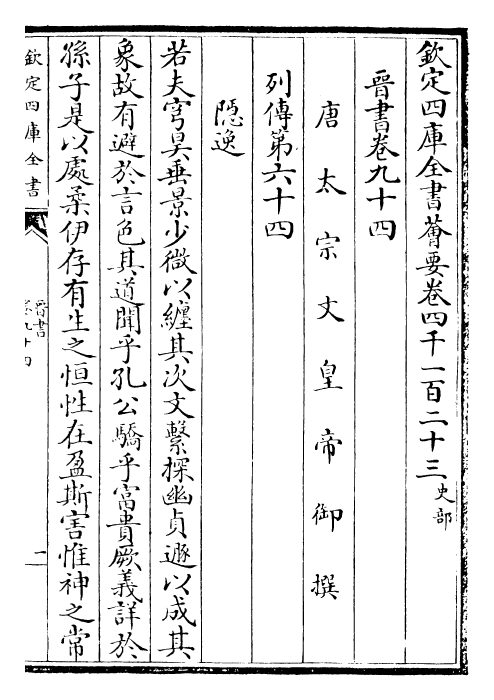 欽定四庫全書薈要卷四千一百二十三 史部
晉書卷九十四
唐太宗文皇帝御撰
列傳第六十四
隱逸
若夫穹昊垂景少微以纏其次文繫探幽貞遯以成其
象故有避於言色其道聞乎孔公驕乎富貴厥義詳於
孫子是以處柔伊存有生之恒性在盈斯害惟神之常
欽定四庫全書
晉書
卷九十四
一